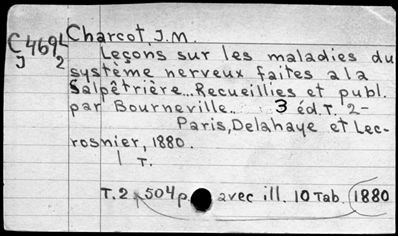 Charcot, J.M.
C4694 Leçons sur les maladies du
J 2 système nerveux faites a la
Salpêtrière... Recueillies et publ.
par Bourneville. 3 éd. T. 2-
Paris, Delahaye et Lec-
rosnier, 1880.
1 T.
T.2 504 p. avec ill. 10 Tab. 1880